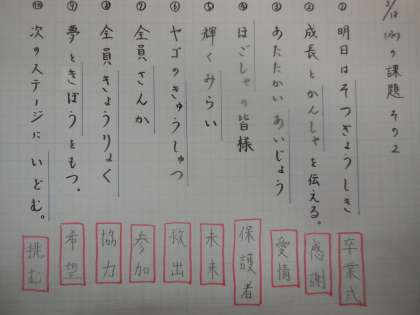 3/18(水)の課題 その2
① 明日はそつぎょうしき
② 成長とかんしゃを伝える。
③ あたたかいあいじょう
④ ほごしゃの皆様
⑤ 輝くみらい
⑥ ヤゴのきゅうしゅつ
⑦ 全員さんか
⑧ 全員きょうりょく
⑨ 夢ときぼうをもつ。
⑩ 次のステージにいどむ。
卒業式
感謝
愛情
保護者
未来
救出
参加
協力
希望
挑む